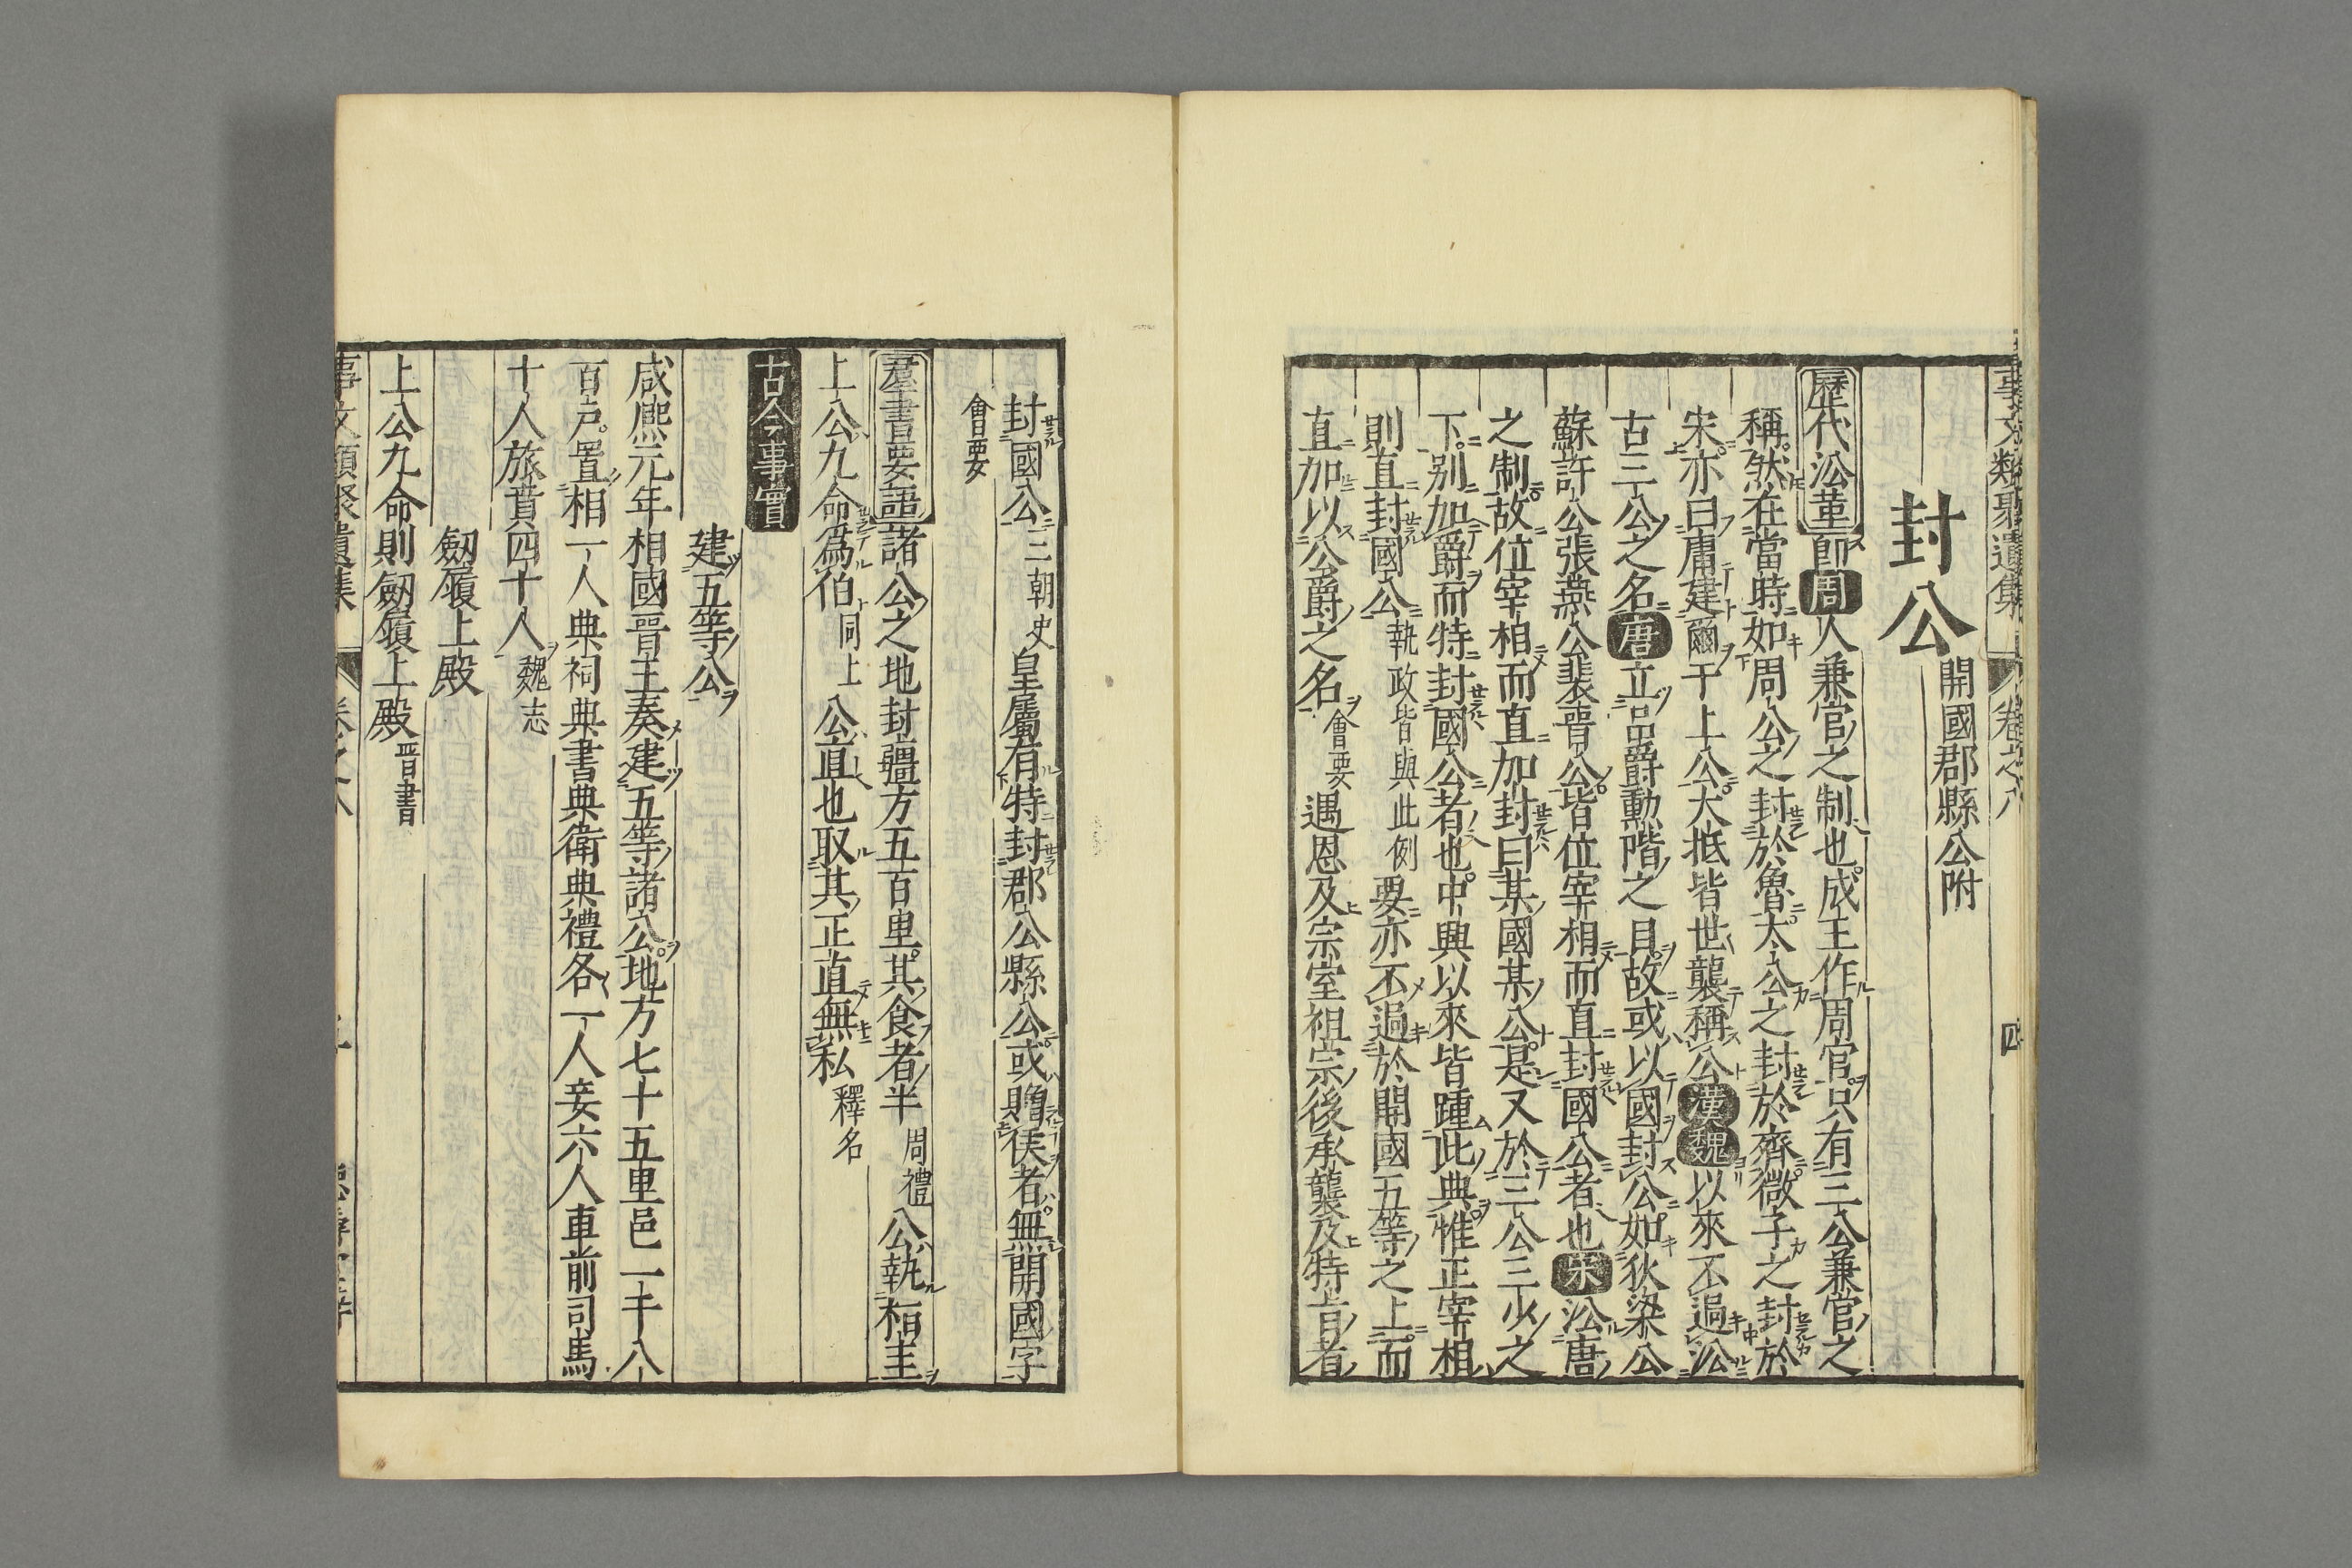 事文類聚遺集 卷之八 四
封公 開國郡縣公附
歷代沿革 師周人兼官之制也成王作周官只有三公兼官之
稱然在當時如周公之封於魯太公之封於齊微子之封於
宋亦曰庸建爾于上公大抵皆世襲稱公漢魏以來不過沿
古三公之名唐立品爵勳階之目故或以國封公如狄梁公
蘇許公張燕公裴晉公皆位宰相而直封國公者也宋沿唐
之制故位宰相而直加封曰某國某公是又於三公三少之
下別加爵而特封國公者也中興以來皆踵此典惟正宰相
則直封國公執政皆與此例要亦不過於開國五等之上而
直加以公爵之名會要遇恩及宗室祖宗後承襲及特旨者
封國公三朝史皇屬有特封郡公縣公或贈侯者無開國字
會要
羣書要語 諸公之地封疆方五百里其食者半周禮公執桓圭
上公九命爲伯同上公直也取其正直無私釋名
古今事實
建五等公
咸熙元年相國晉王奏建五等諸公地方七十五里邑一千八
百戶置相一人典祠典書典衛典禮各一人妾六人車前司馬
十人旅賁四十人魏志
劒履上殿
上公九命則劒履上殿晋書
事文類聚遺集 卷之八